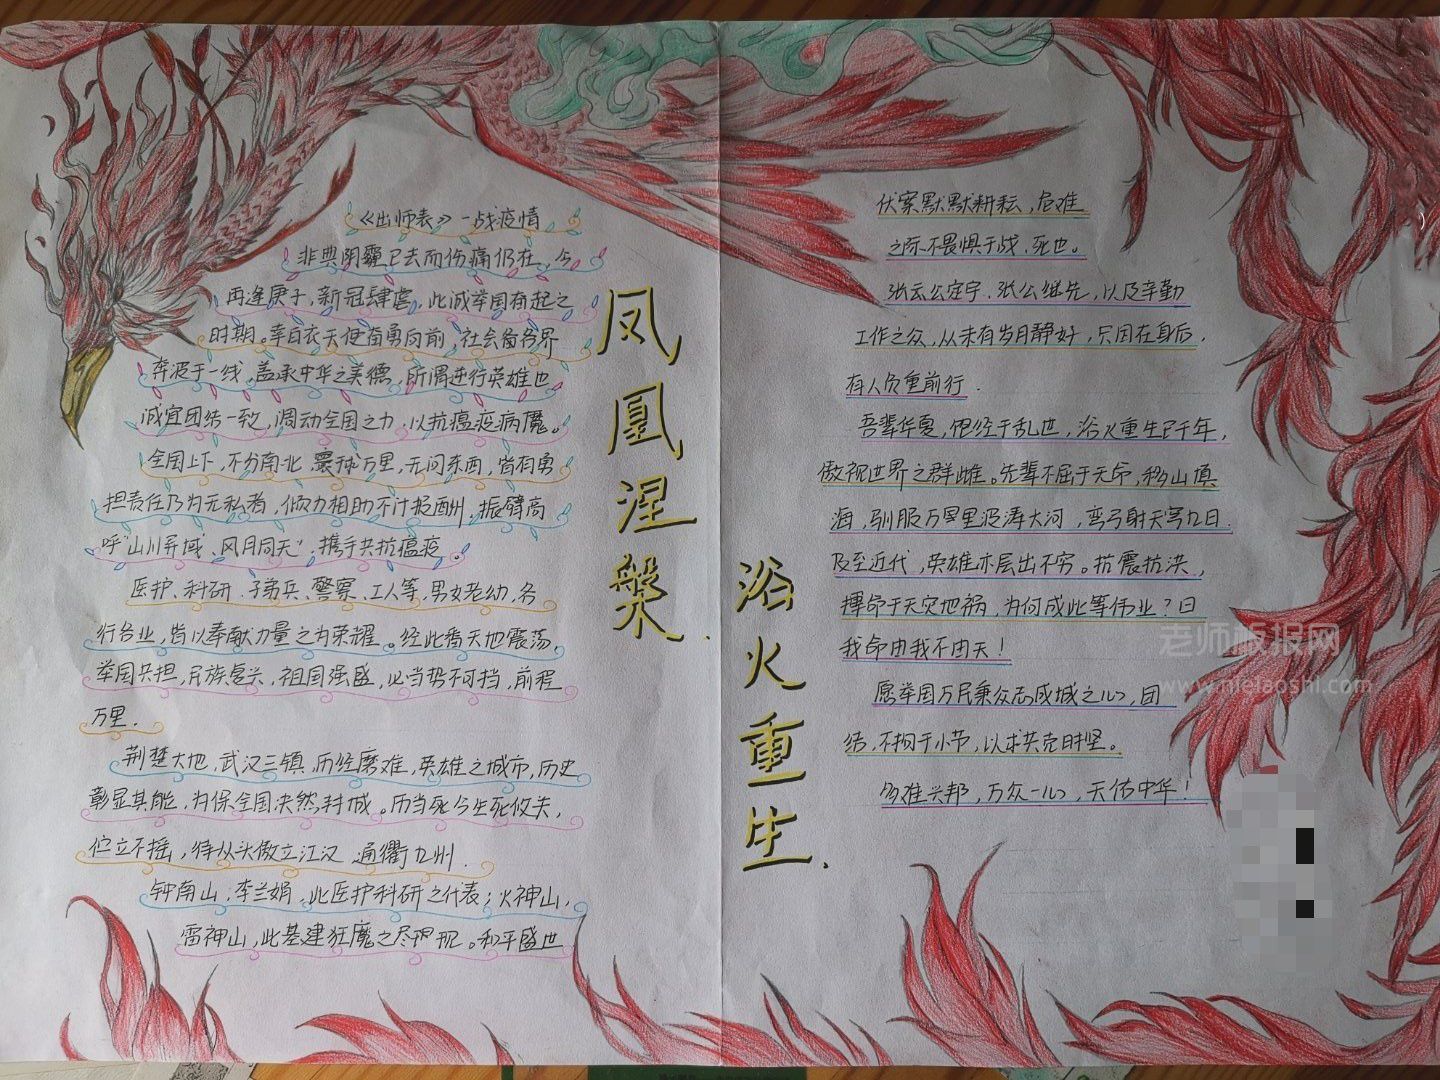 《出师表》一战疫情
非典阴霾已去而伤痛仍在,今
再逢庚子,新冠肆虐,此诚举国奋起之
时期。幸白衣天使奋勇向前,社会各界
奔波于一线,盖承中华之美德,所谓逆行英雄也
诚宜团结一致,调动全国之力,以抗瘟疫病魔。
全国上下,不分南北,寰球万里,无问东西,皆有勇
担责任乃为无私者,倾力相助不计报酬,振臂高
呼"山川异域、风月同天",携手共抗瘟疫。
医护、科研、子弟兵、警察、工人等,男女老幼,各
行各业,皆以奉献力量之为荣耀。经此番天地震荡,
举国共担,民族复兴,祖国强盛,必当势不可挡,前程
万里.
荆楚大地,武汉三镇,历经磨难,英雄之城市,历史
彰显其能,为保全国决然封城。历当死今生死攸关,
伫立不摇,待从头傲立江汉 通衢九州.
钟南山,李兰娟,此医护科研之代表;火神山,
雷神山,此基建狂魔之尽现。和平盛世
凤凰涅槃.
浴火重生.
伏案默默耕耘,危难
之际不畏惧于战,死也。
张云公定宇、张公继先,以及辛勤
工作之众,从未有岁月静好,只因在身后,
有人负重前行.
吾辈华夏,但经于乱世,浴火重生已千年,
傲视世界之群雌。先辈不屈于天命,移山填
海,驯服万里波涛大河,弯弓射天穹九日.
及至近代,英雄亦层出不穷。抗震抗洪,
搏命于天灾地祸,为何成此等伟业?曰
我命由我不由天!
愿举国万民秉众志成城之心,团
结,不拘于小节,以求共克时坚。
多难兴邦,万众一心,天佑中华!
老师板报网